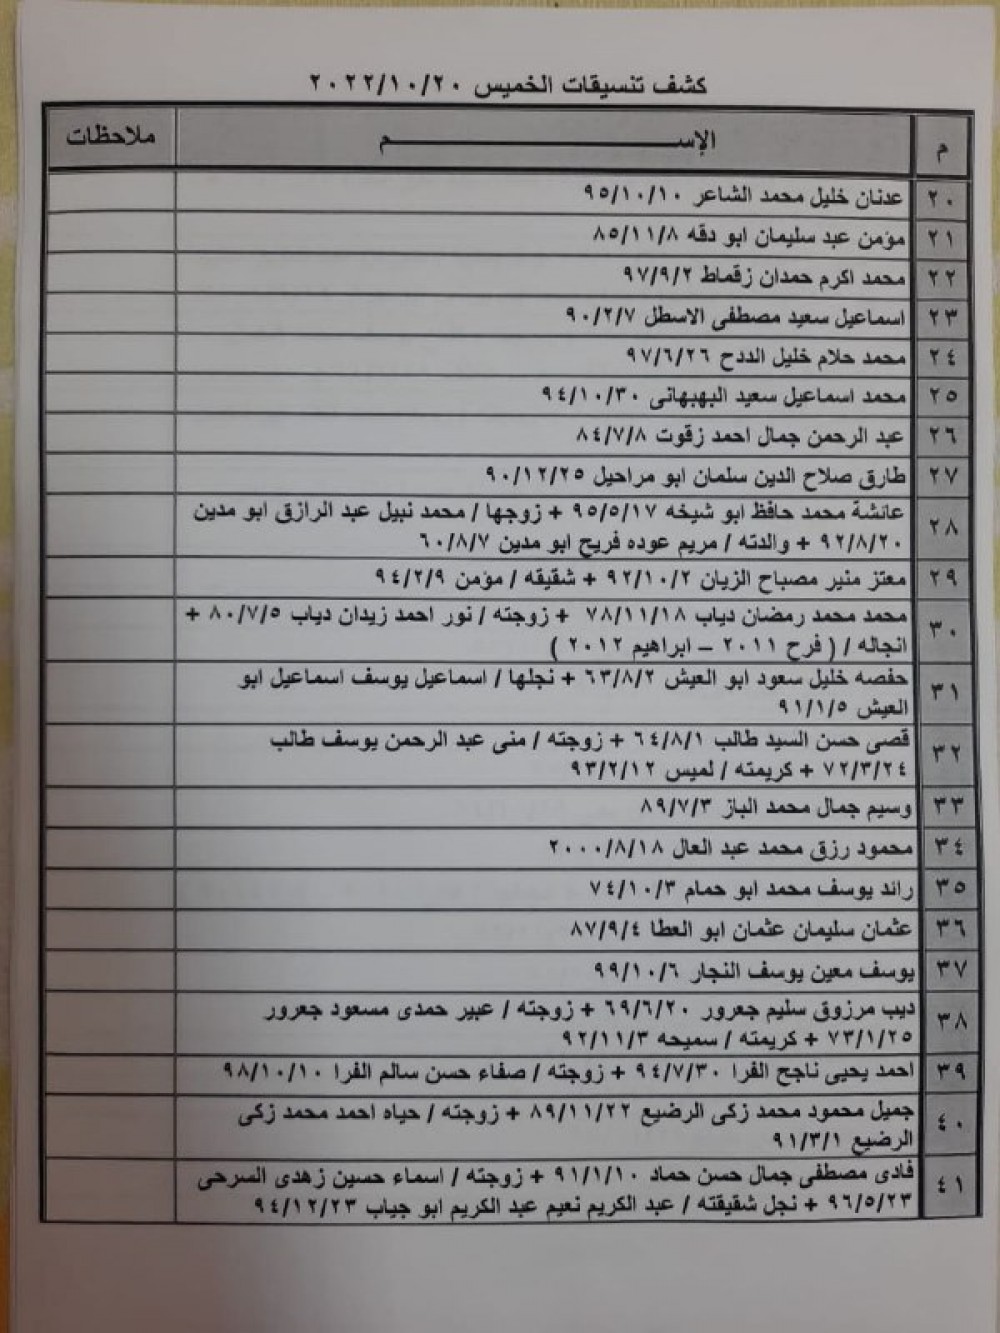 كشف تنسيقات الخميس ٢٠٢٢/١٠/٢٠
م الإســـــم ملاحظات
٢٠ عدنان خليل محمد الشاعر ٩٥/١٠/١٠
٢١ مؤمن عبد سليمان ابو دقه ٨٥/١١/٨
٢٢ محمد اكرم حمدان زقماط ٩٧/٩/٢
٢٣ اسماعيل سعيد مصطفى الاسطل ٩٠/٢/٧
٢٤ محمد حلام خليل الددح ٩٧/٦/٢٦
٢٥ محمد اسماعيل سعيد البهبهانى ٩٤/١٠/٣٠
٢٦ عبد الرحمن جمال احمد زقوت ٨٤/٧/٨
٢٧ طارق صلاح الدين سلمان ابو مراحيل ٩٠/١٢/٢٥
٢٨ عائشة محمد حافظ ابو شيخه ٩٥/٥/١٧ + زوجها / محمد نبيل عبد الرازق ابو مدين
٩٢/٨/٢٠ + والدته / مريم عوده فريح ابو مدين ٦٠/٨/٧
٢٩ معتز منير مصباح الزيان ٩٢/١٠/٢ + شقيقه / مؤمن ٩٤/٢/٩
٣٠ محمد محمد رمضان دياب ٧٨/١١/١٨ + زوجته / نور احمد زيدان دياب ٨٠/٧/٥ +
انجاله / ( فرح ٢٠١١ – ابراهيم ٢٠١٢ )
٣١ حفصه خليل سعود ابو العيش ٦٣/٨/٢ + نجلها / اسماعيل يوسف اسماعيل ابو
العيش ٩١/١/٥
٣٢ قصى حسن السيد طالب ٦٤/٨/١ + زوجته / منى عبد الرحمن يوسف طالب
٧٢/٣/٢٤ + كريمته / لميس ٩٣/٢/١٢
٣٣ وسيم جمال محمد الباز ٨٩/٧/٣
٣٤ محمود رزق محمد عبد العال ٢٠٠٠/٨/١٨
٣٥ رائد يوسف محمد ابو حمام ٧٤/١٠/٣
٣٦ عثمان سليمان عثمان ابو العطا ٨٧/٩/٤
٣٧ يوسف معين يوسف النجار ٩٩/١٠/٦
٣٨ ديب مرزوق سليم جعرور ٦٩/٦/٢٠ + زوجته / عبير حمدى مسعود جعرور
٧٣/١/٢٥ + كريمته / سميحه ٩٢/١١/٣
٣٩ احمد يحيى ناجح الفرا ٩٤/٧/٣٠ + زوجته / صفاء حسن سالم الفرا ٩٨/١٠/١٠
٤٠ جميل محمود محمد زكى الرضيع ٨٩/١١/٢٢ + زوجته / حياه احمد محمد زكى
الرضيع ٩١/٣/١
٤١ فادى مصطفى جمال حسن حماد ٩١/١/١٠ + زوجته / اسماء حسين زهدى السرحى
٩٦/٥/٢٣ + نجل شقيقته / عبد الكريم نعيم عبد الكريم ابو جياب ٩٤/١٢/٢٣